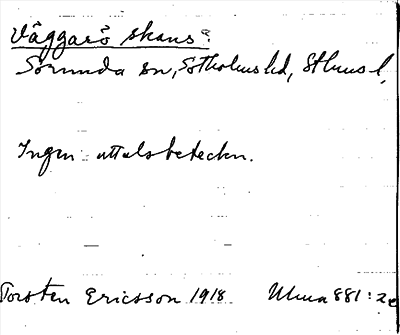 Väggarö skans
Sorunda sn, Sotholms hd, Sthms l.
Ingen uttalsbeteckn.
Torsten Ericsson 1918. Ulma 881:2c